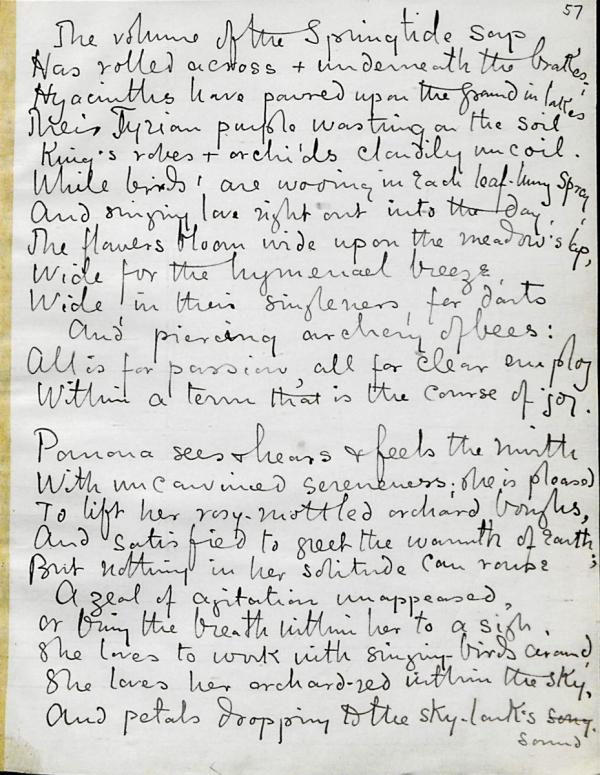 57
The volume of the Springtide sap
Has rolled across + underneath the brakes;
Hyacinths have poured upon the ground in lakes
Their Tyrian purple wasting on the soil
King's robes + orchids cloudily uncoil.
While birds are wooing in each leaf-hung spray,
And singing love right out into the day,
The flowers bloom wide upon the meadow's lap,
Wide for the hymenael breeze,
Wide, in their singleness, for darts
And piercing archery of bees:
All is for passion, all for clear employ
Within a term that is the course of joy.
Pomona sees + hears + feels the mirth
With unconvinced sereneness; she is pleased
To lift her rosy-mottled orchard boughs,
And satisfied to greet the warmth of Earth;
But nothing in her solitude can rouse
A zeal of agitation unappeased,
Or bring the breath within her to a sigh.
She loves to work with singing birds around,
She loves her orchard-red within the sky,
And petals dropping to the sky-lark's song.
sound